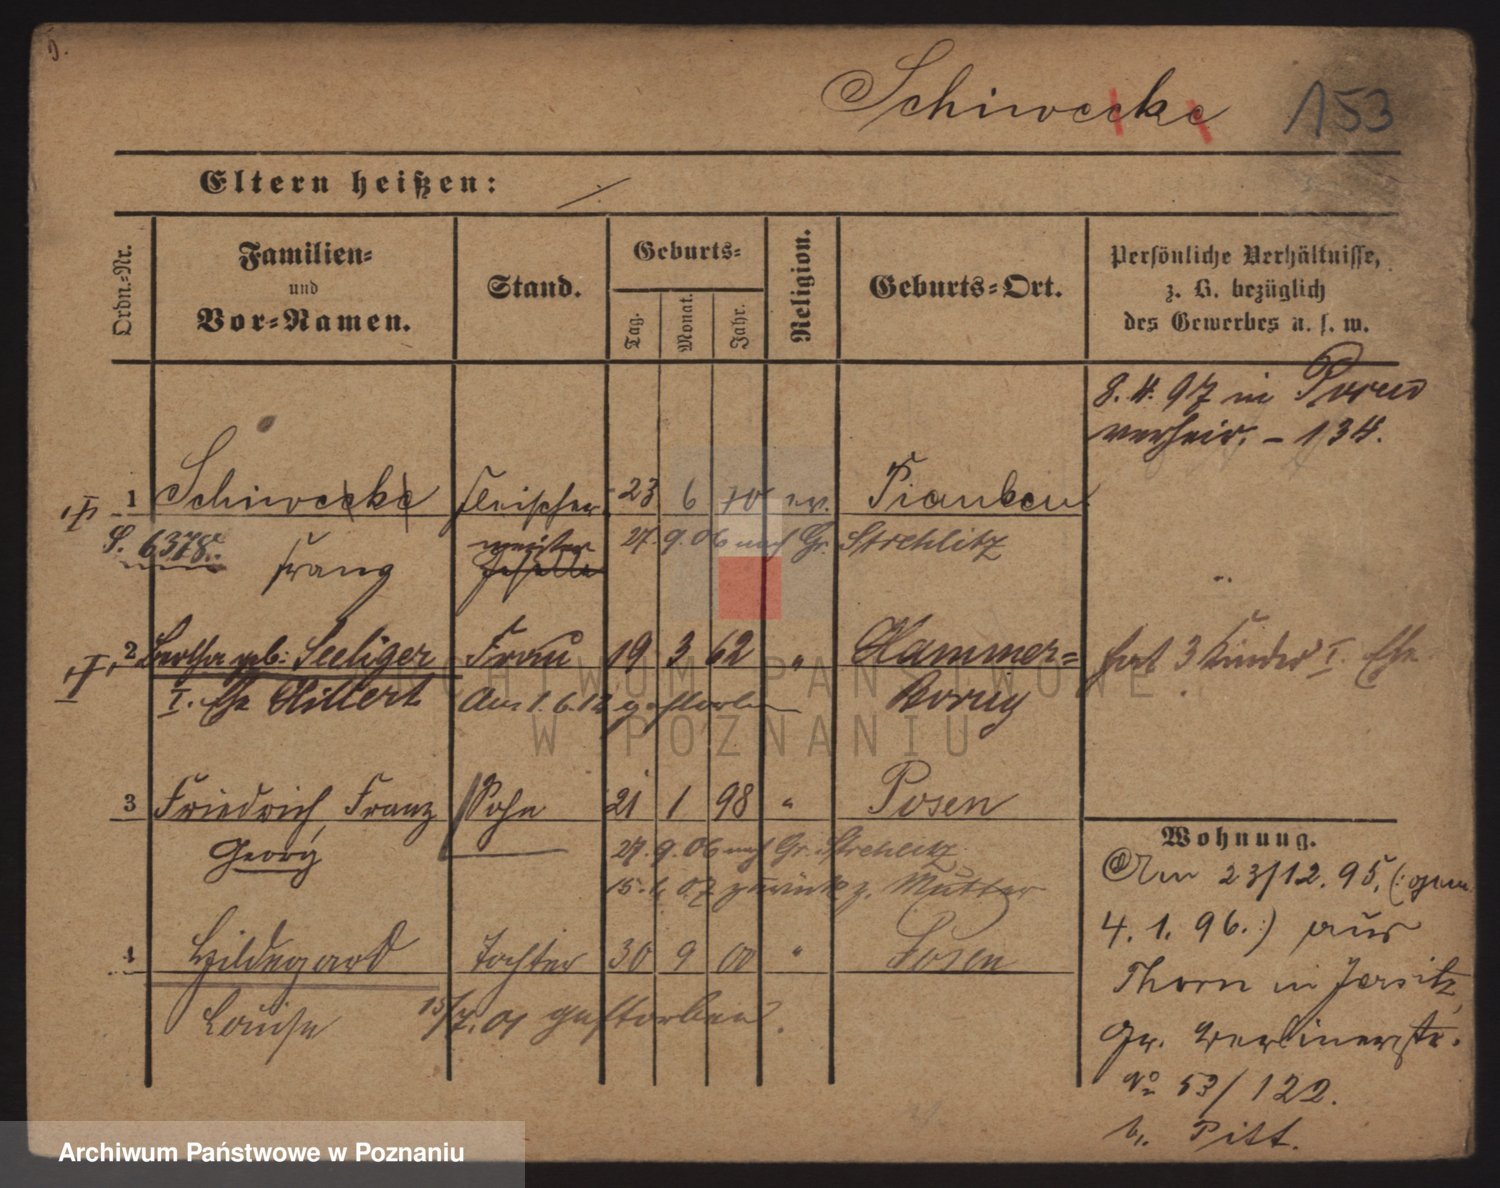 Schiwecke 153
Eltern heißen: /
Ordn.-Nr.
Familien-
und
Vor-Namen.
Stand.
Geburts-
Tag.
Monat.
Jahr.
Religion.
Geburts-Ort.
Persönliche Verhältnisse,
z. B. bezüglich
des Gewerbes u. s. w.
8. 4. 97 in Posen
verheir. – 134.
1 Schiwecke Fleischer 23 6 70 ev. Pianken
S. 6378. Franz meister Geselle 27. 9. 06 nach Gr. Strehlitz
2 Bertha geb. Seeliger Frau 19 3 62 " Hammer-
hat 3 Kinder I. Ehe
I. Ehe Hillert Am 1.6.12 gestorben Boruy
3 Friedrich, Franz Sohn 21 1 98 " Posen
Georg 27. 9. 06 nach Gr. Strehlitz
15. 07 zurück z. Mutter
4 Hildegard Tochter 30 9 00 " Posen
Louise 15/7. 01 gestorben.
Wohnung.
Am 23/12. 95. (: gem.
4. 1. 96. :) aus
Thorn in Jersitz,
Gr. Berlinerstr.
No 53/122.
b. Pitt.
ARCHIWUM PAŃSTWOWE
W POZNANIU
Archiwum Państwowe w Poznaniu